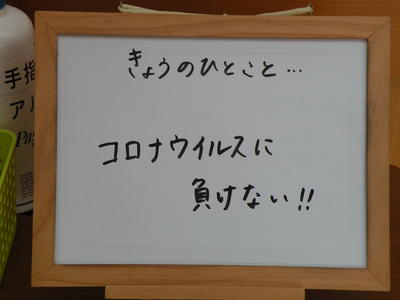 きょうのひとこと…
コロナウイルスに
負けない!!
手指
アル
Pas